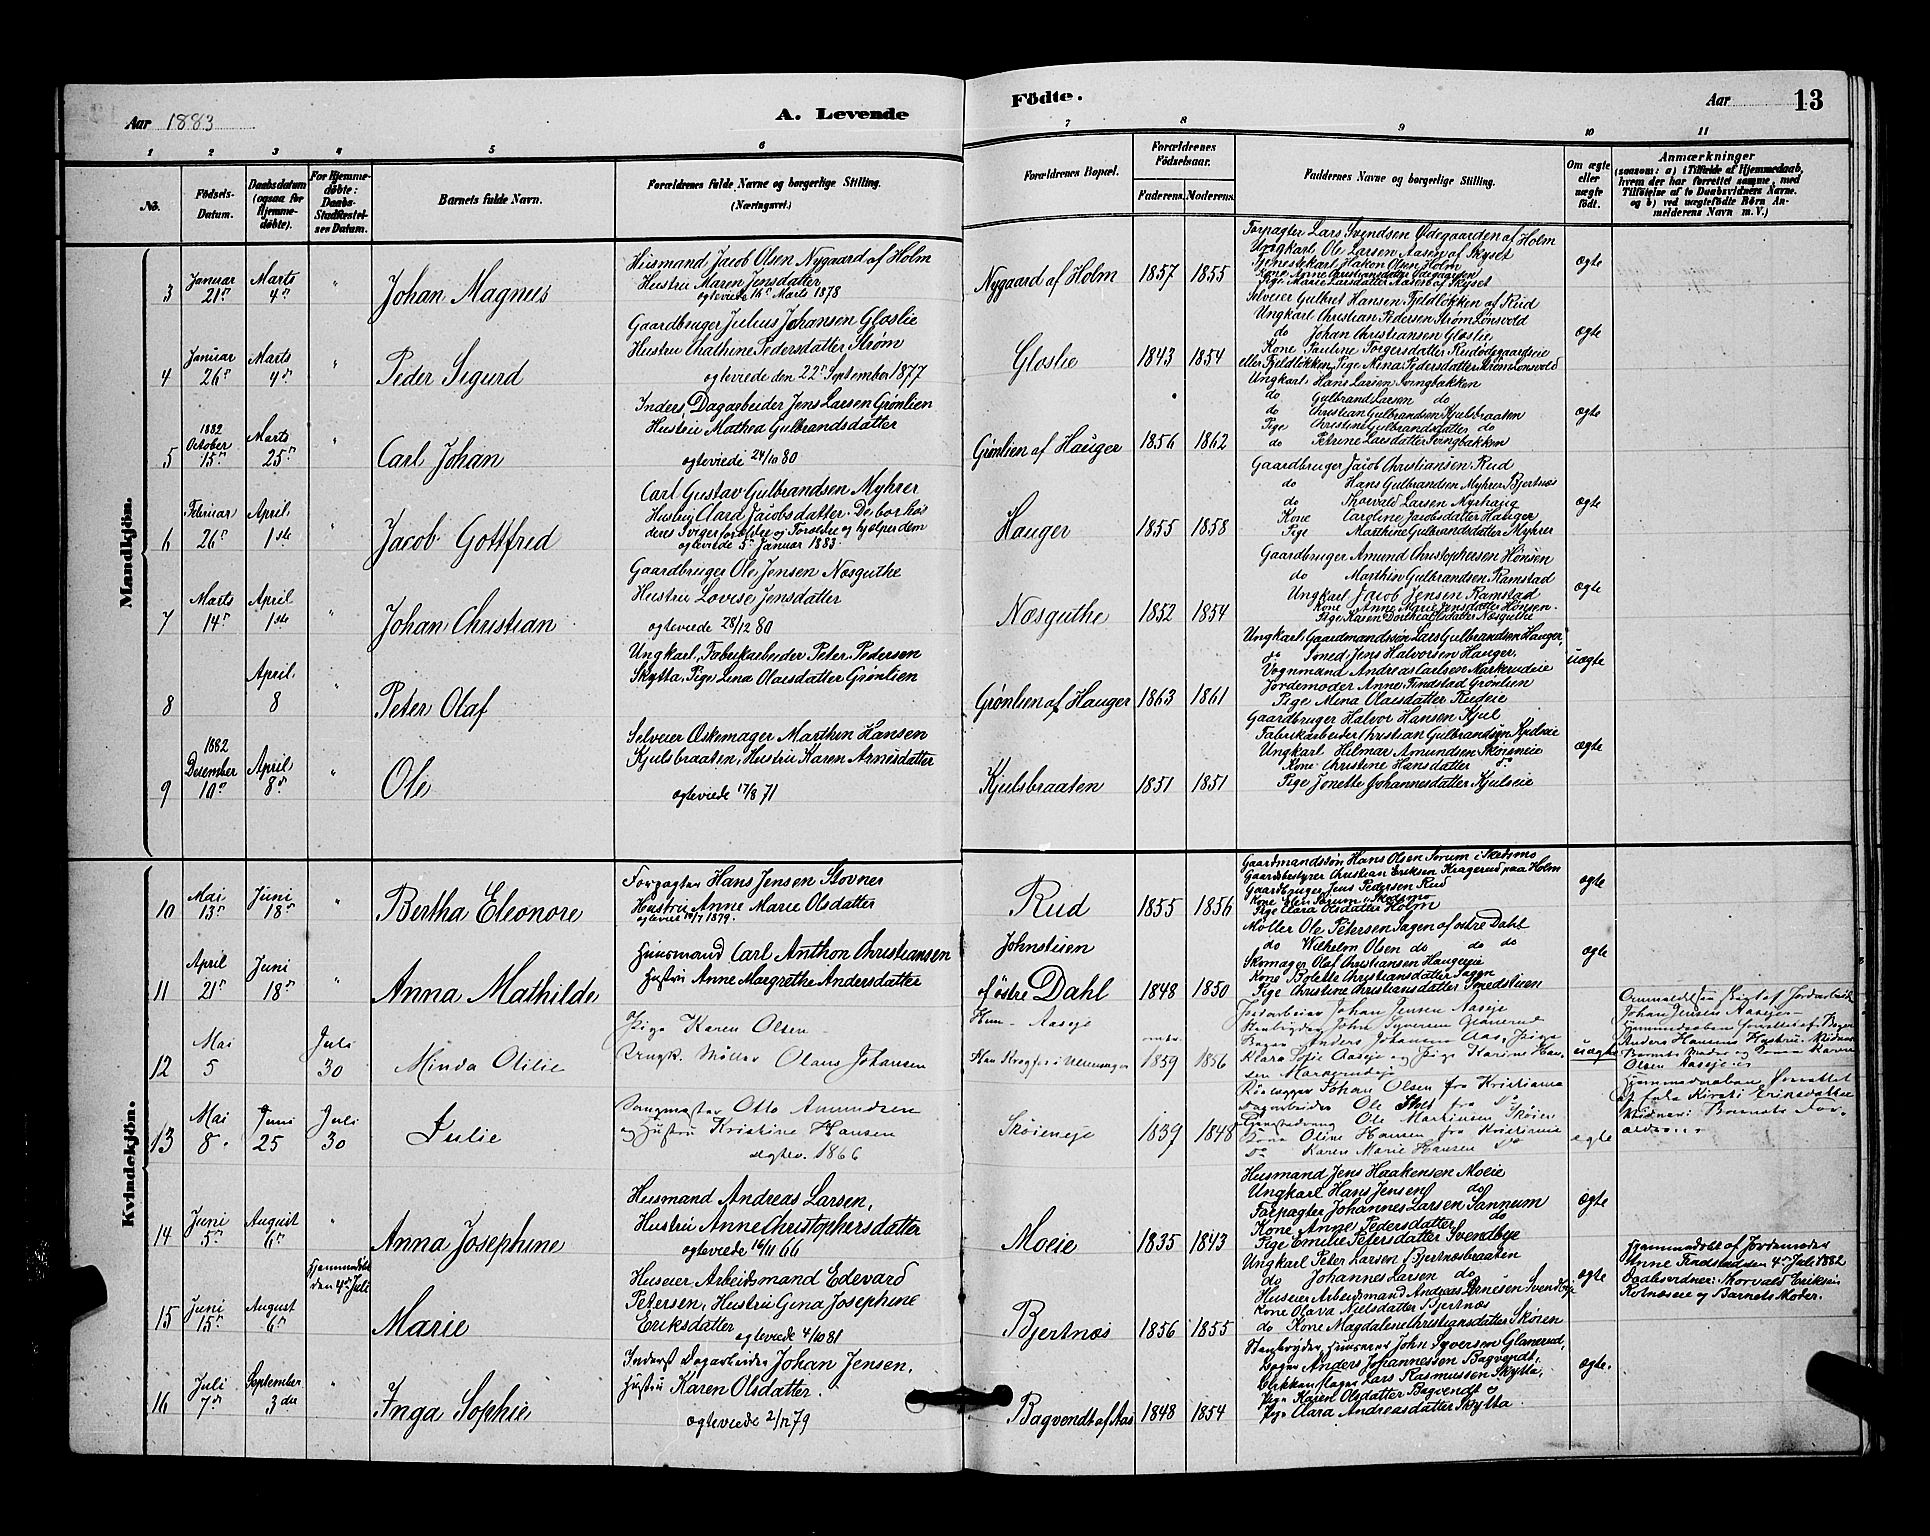 Aar 1883
A. Levende
Födte.
Aar
13
1 2 3 4 5 6 7 8 9 10 11
No.
Födsels-Datum.
Daabsdatum (ogsaa for Hjemmedöbte).
For Hjemmedöbte: Daabs-Stadfæstelses Datum.
Barnets fulde Navn.
Forældrenes fulde Navne og borgerlige Stilling.
(Næringsvei.)
Forældrenes Bopæl.
Forældrenes Födselsaar.
Faderens. Moderens.
Faddernes Navne og borgerlige Stilling.
Om ægte eller uægte født.
Anmærkninger
(saasom: a) i Tilfælde af Hjemmedaab, hvem der har forrettet samme, med Tilföielse af to Daabsvidners Navne. og b) ved uægtefödte Börn Anmelderens Navn m. V.)
Mandkjön.
3 Januar 21de Marts 4de " Johan Magnus
Husmand Jacob Olsen Nygaard af Holm
Hustru Maren Jensdatter
egteviede 16de Marts 1878
Nygaard af Holm 1857 1855
Forpagter Lars Svendsen Ødegaarden af Holm
Ungkarl, Ole Larsen Aasen af Skyset
Tjenestekarl Hakon Olsen Holm
Kone Anne Christiansdatter Ødegaarden
Pige Marie Larsdatter Aasen af Skyset
ægte
4 Januar 26de Marts 4de " Peder Sigurd
Gaardbruger Julius Johansen Gloslie
Hustru Chathrine Pedersdatter Strøm
egteviede den 22de September 1877
Gloslie 1843 1854
Selveier Gulbret Hansen Fjeldløkken af Rud
Ungkarl Christian Pedersen Strøm Lønsvold
do Johan Christiansen Gloslie
Kone Pauline Torgersdatter Rudødegaardseie
eller Fjeldløkken, Pige Nina Pedersdatter Strøm Lønsvold
ægte
5 1882 October 15de Marts 25de " Carl Johan
Inders. Dagarbeider Jens Larsen Grønlien
Hustru Mathea Gulbrandsdatter
egteviede 24/10 80
Grønlien af Hauger 1856 1862
Ungkarl Hans Larsen Svingbakken
do Gulbrand Larsen do
do Christian Gulbrandsen Kjulsbraaten
Pige Christine Gulbrandsdatter do
do Petrine Larsdatter Svingbakken
ægte
6 Februar 26de April 1ste " Jacob Gottfred
Carl Gustav Gulbrandsen Myhrer
Hustru Clara Jacobsdatter. De bor hos
deres Svigerforældre og Forældre og hjælper dem
egteviede 5te Januar 1883
Hauger 1855 1858
Gaardbruger Jacob Christiansen Rud
do Hans Gulbrandsen Myhrer Bjertnæs
do Thorvald Larsen Myrhaug
Kone Caroline Jacobsdatter Hauger
Pige Marthine Gulbrandsdatter Myhrer
ægte
7 Marts 14de April 1ste " Johan Christian
Gaardbruger Ole Jensen Næsguthe
Hustru Lovise Jensdatter
egteviede 28/12 80
Næsguthe 1852 1854
Gaardbruger Amund Christophersen Hønsen
do Marthin Gulbrandsen Ramstad
Ungkarl Jacob Jensen Ramstad
Kone Anne Marie Jensdatter Hønsen
Pige Karen Dorthea Olsdatter Næsguthe
ægte
8 April 8 " Peter Olaf
Ungkarl, Fabrikarbeider Peter Pedersen
Skytta, Pige Lina Olausdatter Grønlien
Grønlien af Hauger 1863 1861
Ungkarl, Gaardmandssøn Lars Gulbrandsen Hauger,
do Smed, Jens Halvorsen Hauger,
Vognmand Andreas Carlsen Markerudeie
Jordemoder Anne Findstad Grønlien
Pige Mina Olausdatter Rudeie
uægte
9 1882 December 10de April 8de " Ole
Selveier Æskemager Marthin Hansen
Kjulsbraaten, Hustru Karen Arnesdatter
egteviede 17/8 71
Kjulsbraaten 1851 1851
Gaardbruger Halvor Hansen Kjul
Fabrikarbeider Christian Gulbrandsen Kjuleie
Ungkarl Hilmar Amundsen Skøieneie
Kone Christine Hansdatter do
Pige Jonette Johannesdatter Kjulseie
ægte
Kvindekjön.
10 Mai 13de Juni 18de " Bertha Eleonore
Forpagter Hans Jensen Stovner
Hustru Anne Marie Olsdatter
Rud 1855 1856
Gaardmandssøn Hans Olsen Sørum i Skedsmo
Gaardsbestyrer Christian Eriksen Kragerud paa Holm
Gaardbruger Jens Pedersen Rud
Kone Elen Sørum i Skedsmo
Pige Clara Olsdatter Holm
ægte
11 April 21de Juni 18de " Anna Mathilde
Huusmand Carl Anthon Christiansen
Hustru Anne Margrethe Andersdatter
Johnstuen
af östre Dahl 1848 1850
Møller Ole Petersen Sagen af østre Dahl
do Wilhelm Olsen do do do
Skomager Olaf Christiansen Haugeeie
Kone Bolette Christiansdatter Sagen
Pige Christine Christiansdatter Smedstuen
ægte
12 Mai 5 Juli 30 Minda Otilie
Pige Karen Olsen
Ungk. Møller Olaus Johansen
Hun - Aaseje
1859 1856
Jordarbeier Johan Jensen Aaseje
Stenbryder John Syversen Glanerud
Bager Anders Johansen Aas, Pige
Klara Sofie Aaseje og Pige Karine Hansen
uægte
Johan Jensen Aaseje
13 Mai 8. Juni 25 Juli 30 Julie
Sangmester Otto Amundsen
og Hustru Kristine Hansen
ægtev. 1866
Skøieneje 1839 1848
Johan Olsen fra Kristiania
Dagarbeider Ole Stolt fra do
Ole Martinsen Skøien
Kone Oline Hansen fra Kristiania
do Karen Marie Hansen do
ægte
Hjemmedøbt
14 Juni 5de August 6de " Anna Josephine
Husmand Andreas Larsen,
Hustru Anne Christophersdatter
egteviede 16/11 66
Moeie 1835 1843
Husmand Jens Haakensen Moeie
Ungkarl Hans Jensen do
Forpagter Johannes Larsen Sannum
Kone Anne Pedersdatter do
Pige Emilie Petersdatter Svendbye
ægte
15 Juni 15de August 6de Hjemmedøbt den 4de Juli Marie
Huseier Arbeidsmand Edevard
Petersen, Hustru Gina Josephine
Eriksdatter egteviede 4/10 81
Bjertnæs 1856 1855
Ungkarl Peter Larsen Bjertnæsbraaten
do Johannes Larsen do
Huseier Arbeidsmand Andreas Arnesen Svendbye
Kone Olava Nielsdatter Bjertnæs
do Kone Magdalene Christiansdatter Skøien
ægte
Hjemmedøbt af Jordemoder
Anne Findstad den 4de Juli 1882
Daabsvidner: Thorvald Eriksen
Rotnæseie og Barnets Moder.
16 Juli 7de September 3die " Inga Sophie
Inderst Dagarbeider Johan Jensen,
Hustru Karen Olsdatter.
egteviede 2/12 79
Bagvendt af Aas 1848 1854
Stenbryder, Huuseier John Syversen Glanerud,
Bager Anders Johannessen Bagvendt,
Blikkenslager Lars Rasmussen Skytta,
Pige Karen Olsdatter Bagvendt og
Pige Clara Andreasdatter Skytta.
ægte.